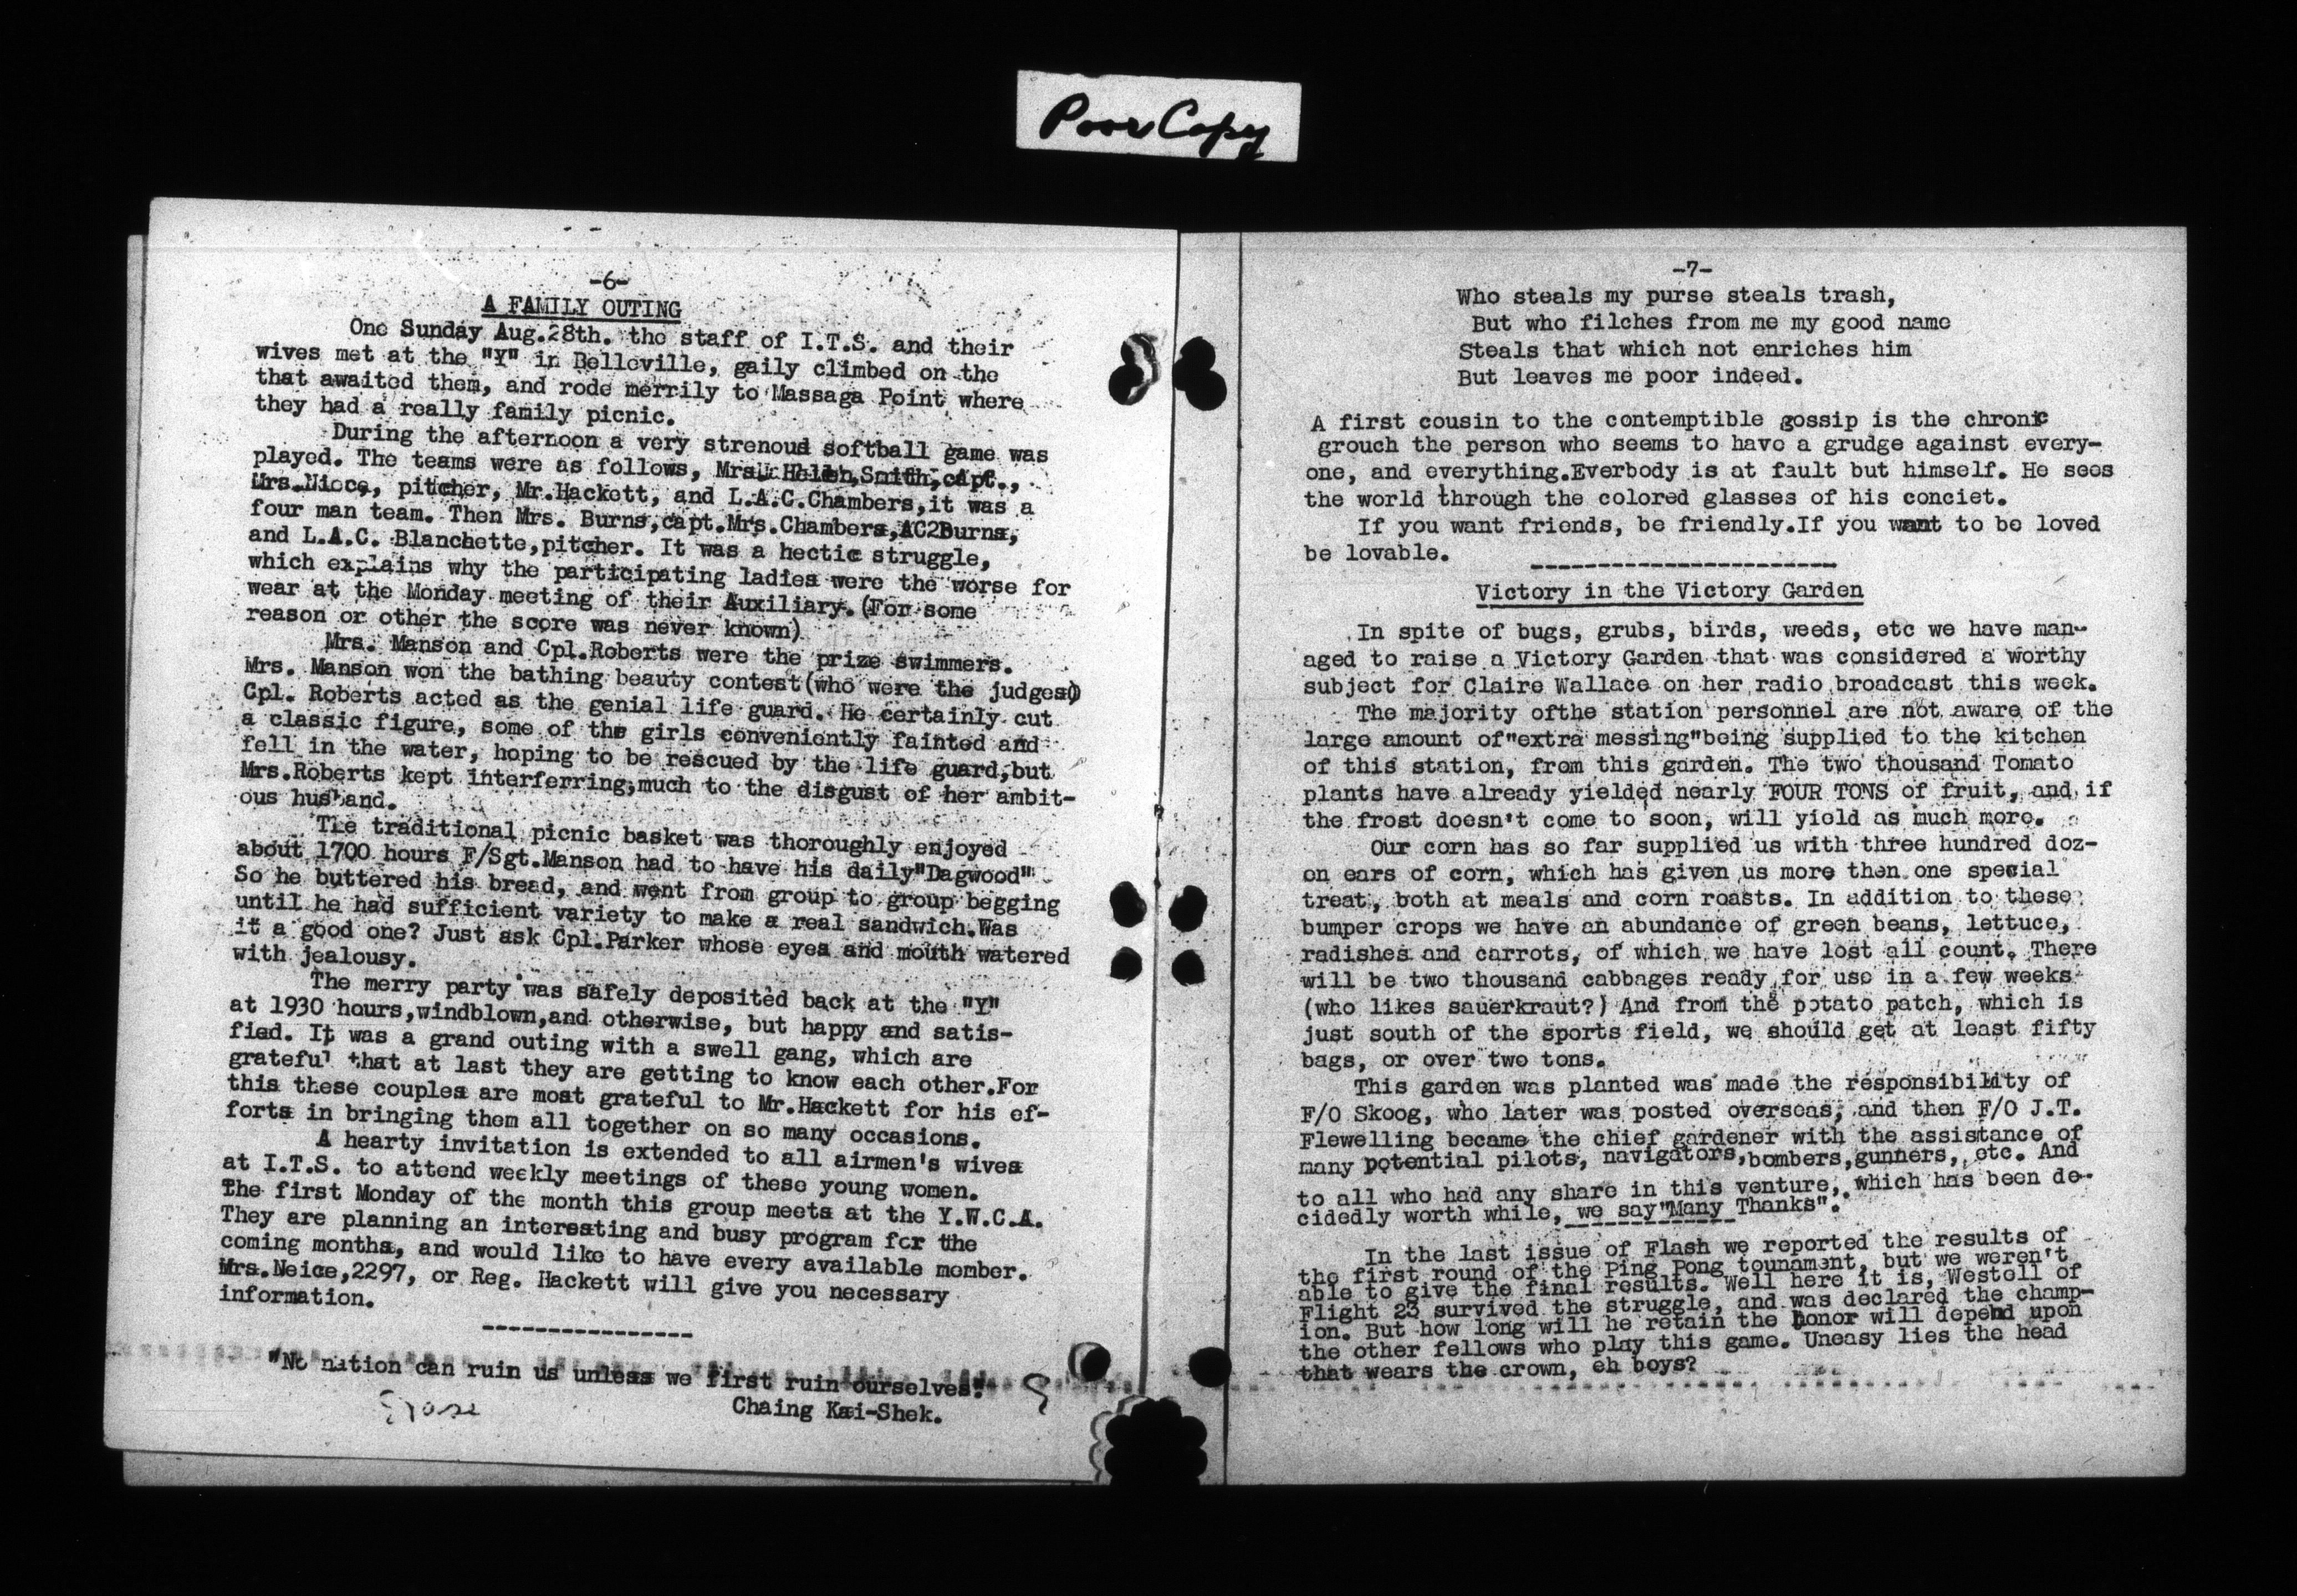 Poor Copy
-6-
A FAMILY OUTING
One Sunday Aug.28th. the staff of I.T.S. and their
wives met at the "Y" in Belleville, gaily climbed on the
that awaited them, and rode merrily to Massaga Point where
they had a really family picnic.
During the afternoon a very strenous softball game was
played. The teams were as follows, Mrs. Helen,Smith,capt.,
Mrs.Niece, pitcher, Mr.Hackett, and L.A.C.Chambers,it was a
four man team. Then Mrs. Burns,capt.Mrs.Chambers,AC2Burns,
and L.A.C. Blanchette,pitcher. It was a hectic struggle,
which explains why the participating ladies were the worse for
wear at the Monday meeting of their Auxiliary.(For some
reason or other the score was never known)
Mrs. Manson and Cpl.Roberts were the prize swimmers.
Mrs. Manson won the bathing beauty contest(who were the judges)
Cpl. Roberts acted as the genial life guard. He certainly cut
a classic figure, some of the girls conveniently fainted and
fell in the water, hoping to be rescued by the life guard,but
Mrs.Roberts kept interferring,much to the disgust of her ambit-
ous husband.
The traditional picnic basket was thoroughly enjoyed
about 1700 hours F/Sgt.Manson had to have his daily"Dagwood"
So he buttered his bread, and went from group to group begging
until he had sufficient variety to make a real sandwich.Was
it a good one? Just ask Cpl.Parker whose eyes and mouth watered
with jealousy.
The merry party was safely deposited back at the "Y"
at 1930 hours,windblown,and otherwise, but happy and satis-
fied. It was a grand outing with a swell gang, which are
grateful that at last they are getting to know each other.For
this these couples are most grateful to Mr.Hackett for his ef-
forts in bringing them all together on so many occasions.
A hearty invitation is extended to all airmen's wives
at I.T.S. to attend weekly meetings of these young women.
The first Monday of the month this group meets at the Y.W.C.A.
They are planning an interesting and busy program for the
coming months, and would like to have every available member.
Mrs.Neice,2297, or Reg. Hackett will give you necessary
information.
----------------
"No nation can ruin us unless we first ruin ourselves."
Chaing Kai-Shek.
-7-
Who steals my purse steals trash,
But who filches from me my good name
Steals that which not enriches him
But leaves me poor indeed.
A first cousin to the contemptible gossip is the chronic
grouch the person who seems to have a grudge against every-
one, and everything.Everbody is at fault but himself. He sees
the world through the colored glasses of his conciet.
If you want friends, be friendly.If you want to be loved
be lovable.
-----------------------
Victory in the Victory Garden
In spite of bugs, grubs, birds, weeds, etc we have man-
aged to raise a Victory Garden that was considered a worthy
subject for Claire Wallace on her radio broadcast this week.
The majority ofthe station personnel are not aware of the
large amount of"extra messing"being supplied to the kitchen
of this station, from this garden. The two thousand Tomato
plants have already yielded nearly FOUR TONS of fruit, and if
the frost doesn't come to soon, will yield as much more.
Our corn has so far supplied us with three hundred doz-
en ears of corn, which has given us more then one special
treat, both at meals and corn roasts. In addition to these
bumper crops we have an abundance of green beans, lettuce,
radishes and carrots, of which we have lost all count. There
will be two thousand cabbages ready for use in a few weeks
(who likes sauerkraut?) And from the potato patch, which is
just south of the sports field, we should get at least fifty
bags, or over two tons.
This garden was planted was made the responsibility of
F/O Skoog, who later was posted overseas, and then F/O J.T.
Flewelling became the chief gardener with the assistance of
many potential pilots, navigators,bombers,gunners, etc. And
to all who had any share in this venture, which has been de-
cidedly worth while, we say"Many Thanks".
In the last issue of Flash we reported the results of
the first round of the Ping Pong tounament, but we weren't
able to give the final results. Well here it is, Westell of
Flight 23 survived the struggle, and was declared the champ-
ion. But how long will he retain the honor will depend upon
the other fellows who play this game. Uneasy lies the head
that wears the crown, eh boys?